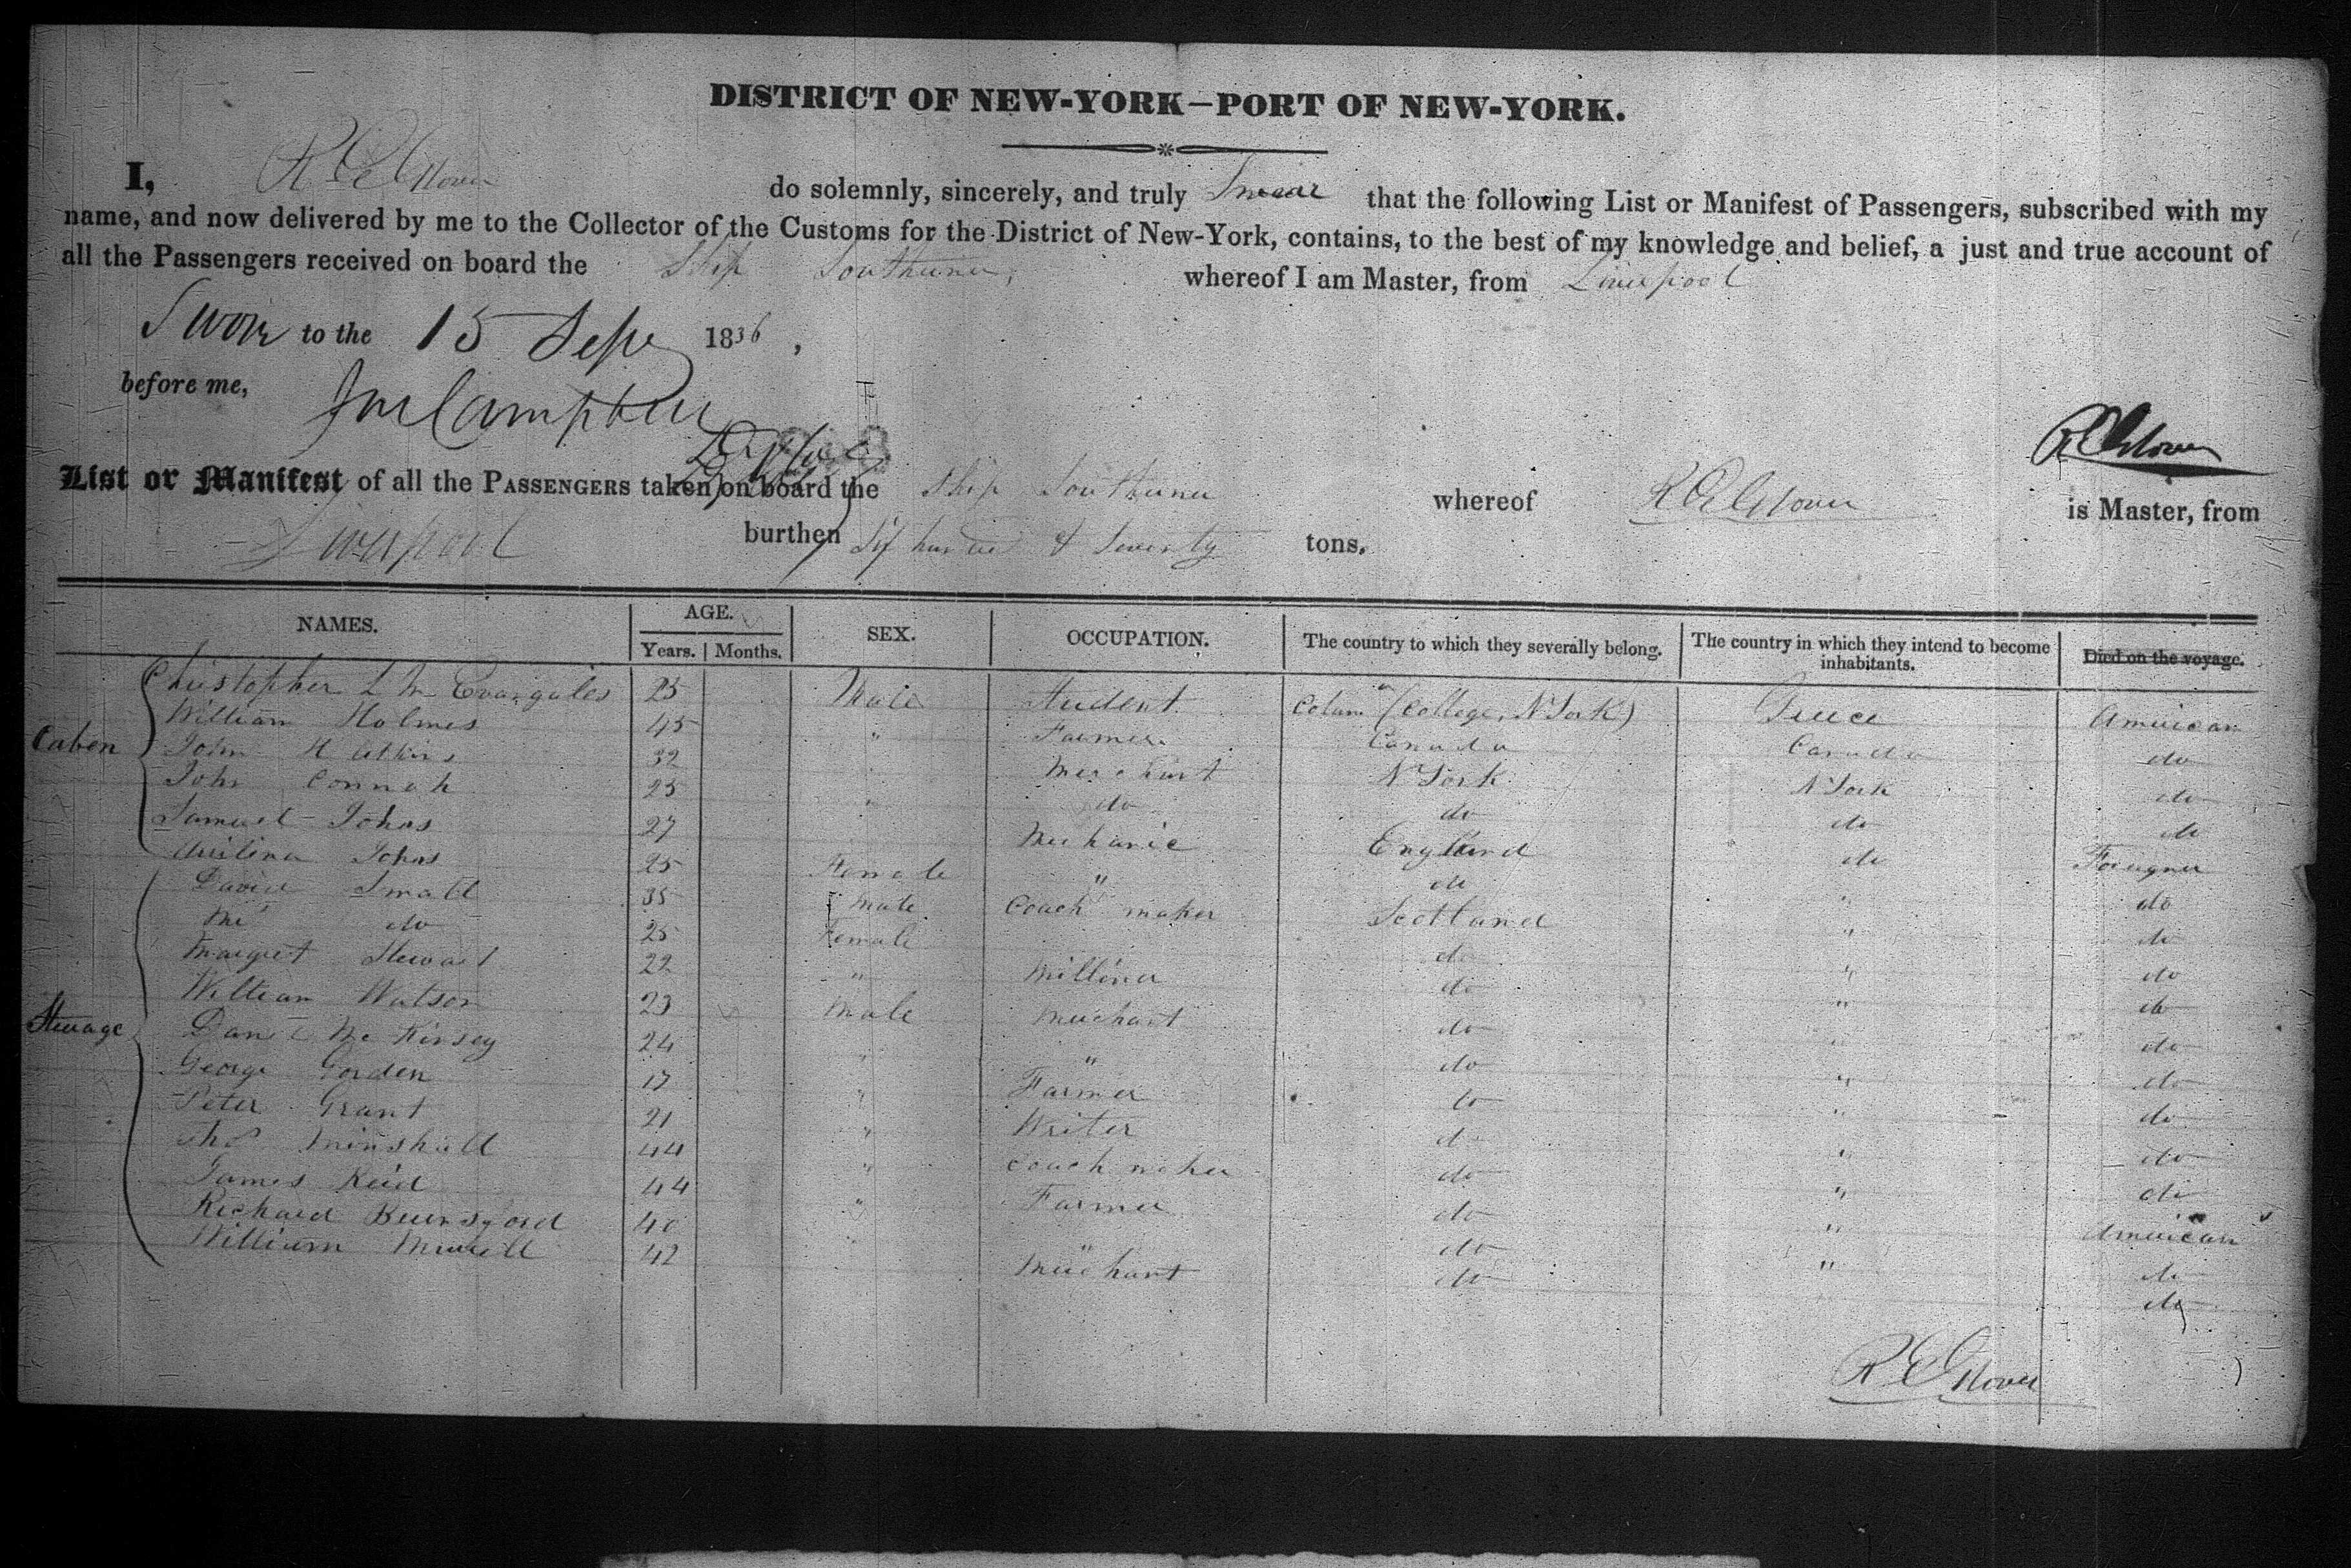 DISTRICT OF NEW-YORK—PORT OF NEW-YORK.
I, R E Glover do solemnly, sincerely, and truly Swear that the following List or Manifest of Passengers, subscribed with my
name, and now delivered by me to the Collector of the Customs for the District of New-York, contains, to the best of my knowledge and belief, a just and true account of
all the Passengers received on board the Ship Southerner, whereof I am Master, from Liverpool
Sworn to the 15 Sept 1836,
before me,
Jno Campbell
R E Glover
List or Manifest of all the PASSENGERS taken on board the Ship Southerner whereof R E Glover is Master, from
Liverpool burthen Six hundred & Seventy tons.
NAMES. AGE. SEX. OCCUPATION. The country to which they severally belong. The country in which they intend to become inhabitants. Died on the voyage.
Years. Months.
Christopher Evangeles 25 Male Student Colum (College, N York) Greece American
Caben
William Holmes 45 " Farmer Canada Canada do
John Hatkins 32 Merchant N York N York do
John Connah 25 " do do do do
Samuel Johns 27 Mechanic England do Foreigner
Johns 25 Female " do " do
David Small 35 Male Coach maker Scotland " do
do 25 Female do " do
Margret Stewart 22 " Milliner do " do
William Watson 23 Male Merchant do " do
Steuage
Danl Mc Kinsey 24 " " do " do
George Gorden 17 " Farmer do " do
Peter Grant 21 " Writer do " do
Thos Minshall 44 " Coach maker do " do
James Reid 44 " Farmer do " American
Richard 40 " " do " do
William 42 Merchant do do
R E Glover